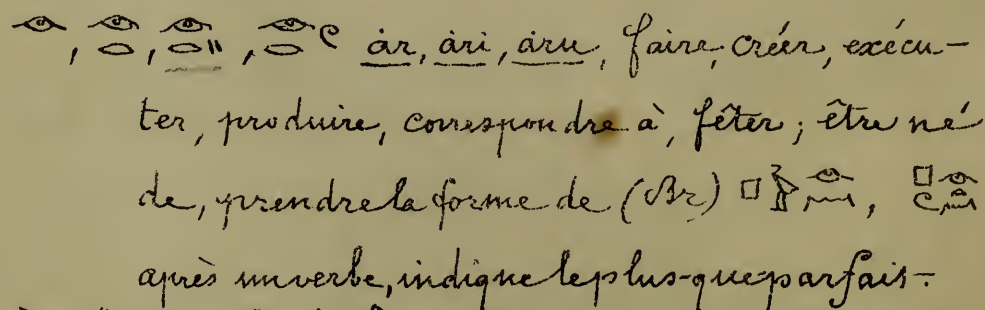 𓁹, 𓁹𓂋, 𓁹𓂋𓏭, 𓁹𓂋𓏲 ȧr, ȧri, ȧru, faire, créer, exécu-
ter, produire, correspondre à, fêter; être né
de, prendre la forme de (Br)
après un verbe, indique le plus-que parfait.